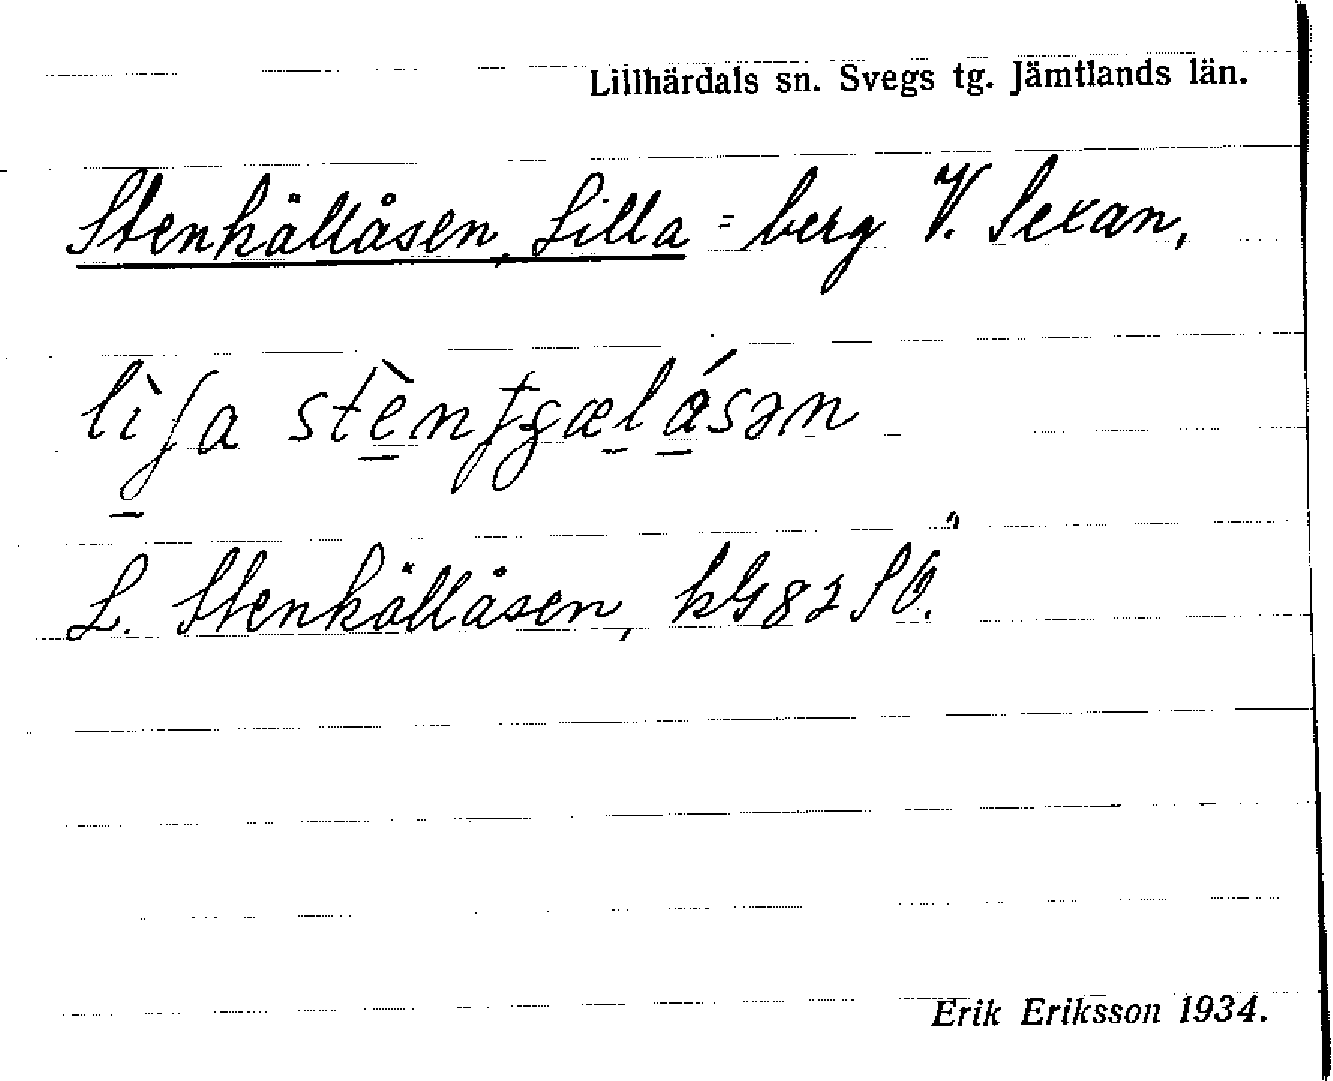 Lillhärdals sn. Svegs tg. Jämtlands län.
Stenkällåsen, Lilla = berg V. Sexan,
L. Stenkällåsen, kG82SÖ.
Erik Eriksson 1934.